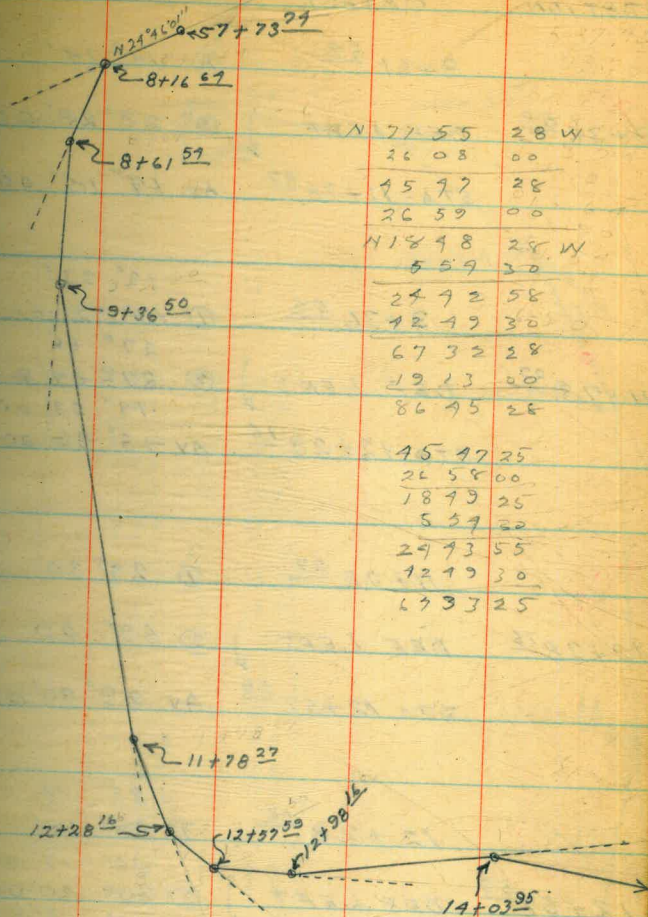 N 24° 46' 01"
57+73 74
8+16 64
8+61 54
9+36 50
11+78 27
12+28 16
12+57 59
12+98 16
14+03 95
N 77 55 28 W
26 08 00
45 47 28
26 59 00
N 18 48 28 W
5 54 30
24 42 58
42 49 30
67 32 28
19 13 00
86 45 28
45 47 25
26 58 00
18 49 25
5 54 30
24 43 55
42 49 30
67 33 25